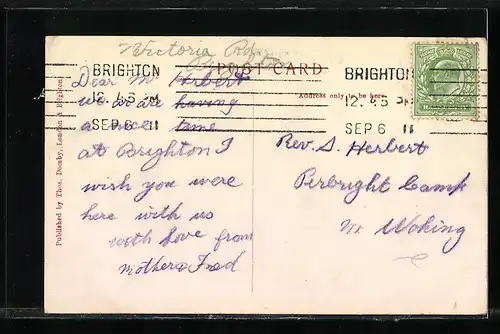 Victoria Rd
POST CARD
Address only to be here.
BRIGHTON
12.45 PM
SEP 6 11
BRIGHTON
12.45 PM
SEP 6 11
Published by Thos. Donby, London & Brighton
Dear Mr Herbert
we are having
a nice time
at Brighton I
wish you were
here with us
with love from
Mother & Fred
Rev. S. Herbert
Pirbright Camp
Nr Woking